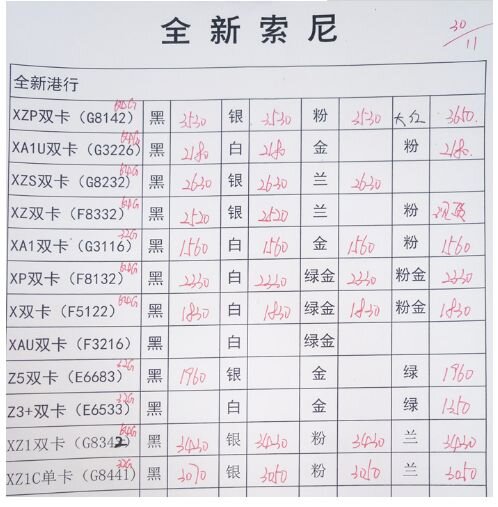 全新索尼
30/11
全新港行
XZP双卡（G8142）64G 黑 3530 银 3530 粉 3530 大红 3650
XA1U双卡（G3226）64G 黑 2180 白 2180 金 粉 2180
XZS双卡（G8232）64G 黑 2630 银 2630 兰 2630
XZ双卡（F8332）64G 黑 2520 银 2520 兰 粉
XA1双卡（G3116）32G 黑 1560 白 1560 金 1560 粉 1560
XP双卡（F8132）64G 黑 2330 白 2330 绿金 2330 粉金 2330
X双卡（F5122）64G 黑 1830 白 1830 绿金 1830 粉金 1830
XAU双卡（F3216） 黑 白 绿金
Z5双卡（E6683）32G 黑 1960 银 金 绿 1960
Z3+双卡（E6533）32G 黑 白 金 绿 1350
XZ1双卡（G8342）64G 黑 3430 银 3430 粉 3430 兰 3430
XZ1C单卡（G8441）32G 黑 3070 银 3050 粉 3050 兰 3050